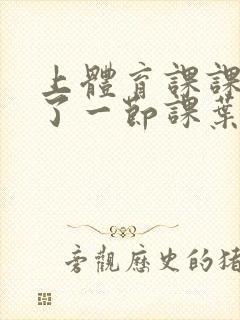 上體育課課
了一節課葉
旁觀歷史的豬